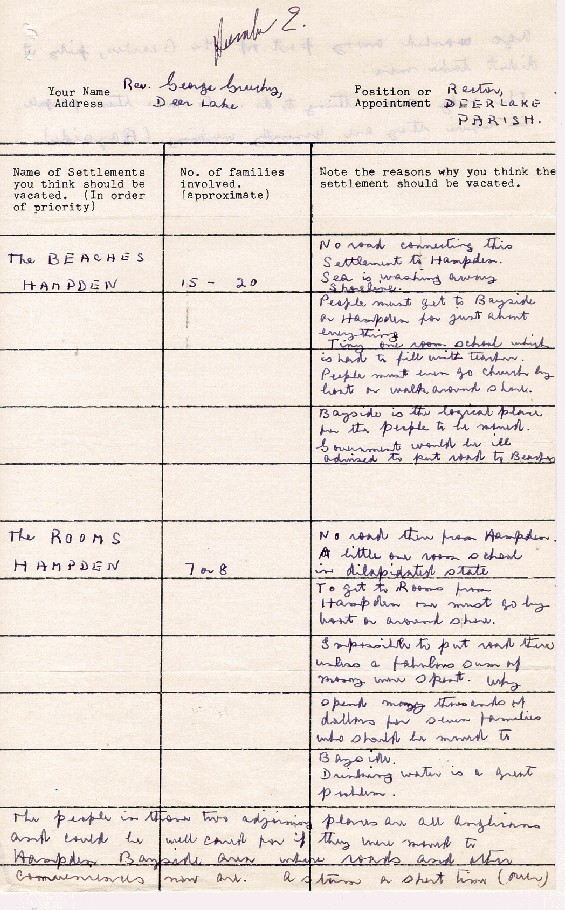 Number 2.
Your Name Rev. George
Address Deer Lake
Position or Rector,
Appointment DEER LAKE
PARISH.
Name of Settlements
you think should be
vacated. (In order
of priority)
No. of families
involved.
(approximate)
Note the reasons why you think the
settlement should be vacated.
The BEACHES
HAMPDEN
15 - 20
No road connecting this
Settlement to Hampden.
Sea is washing away
Shoreline.
People must get to Bayside
or Hampden for just about
everything
Tiny one room school which
is hard to fill with teacher.
People must even go church by
boat or walk around shore.
Bayside is the logical place
for the people to be moved.
Government would be ill
advised to put road to Beaches
The ROOMS
HAMPDEN
7 or 8
No road then from Hampden.
A little one room school
in dilapidated state
To get to Rooms from
Hampden one must go by
boat or around shore.
Impossible to put road there
unless a fabulous sum of
money were spent. Why
spend thousands of
dollars for seven families
who should be moved to
Bayside.
Drinking water is a great
problem.
The people in these two adjoining places are all Anglicans
and could be well cared for if they were moved to
Hampden Bayside area where roads and other
conveniences now are. A short time (over)